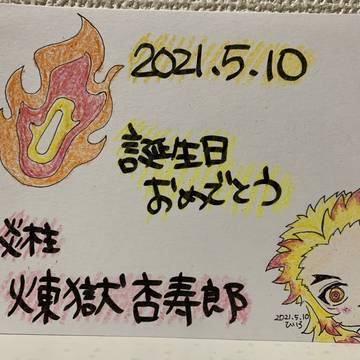 2021.5.10
誕生日
おめでとう
炎柱
煉獄杏寿郎
2021.5.10
ひいろ